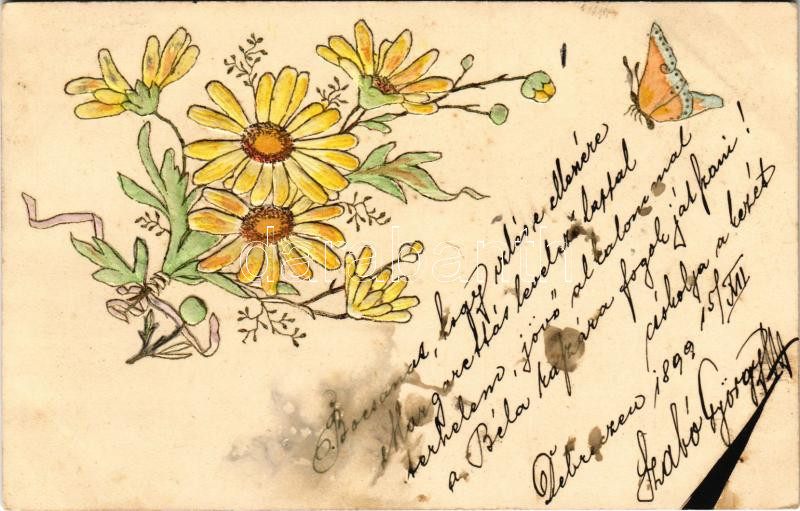 Bocsánat, hogy ellenére
Margarettás levelező lappal
terhelem, jövő alkalommal
a Béla kujára fogok játszani!
csókolja a kezét
Debreczen 1899 15/XII
Szabó György
darabanth